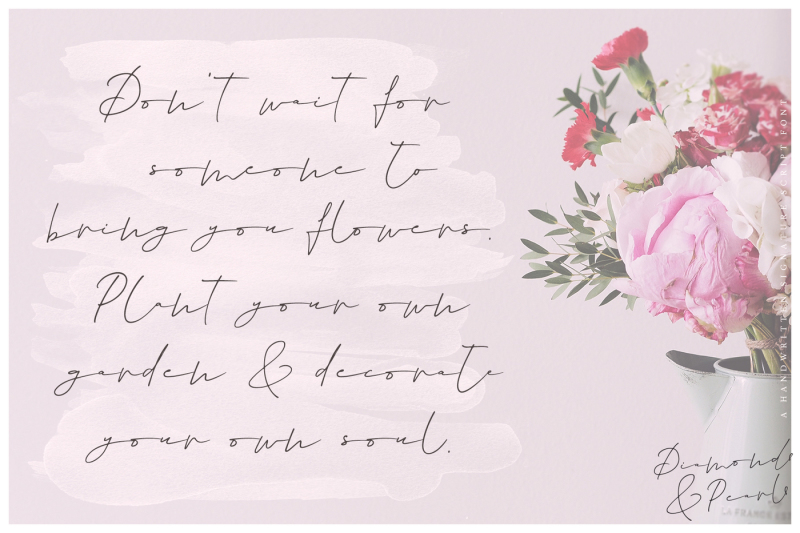 Don't wait for
someone to
bring you flowers.
Plant your own
garden & decorate
your own soul.
A HANDWRITTEN SCRIPT FONT
Diamonds
& Pearls